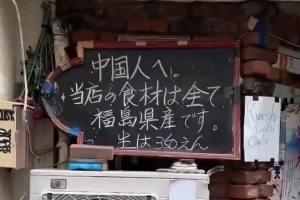 中国人へ
当店の食材は全て
福島県産です。
半は360えん
Cash
Only